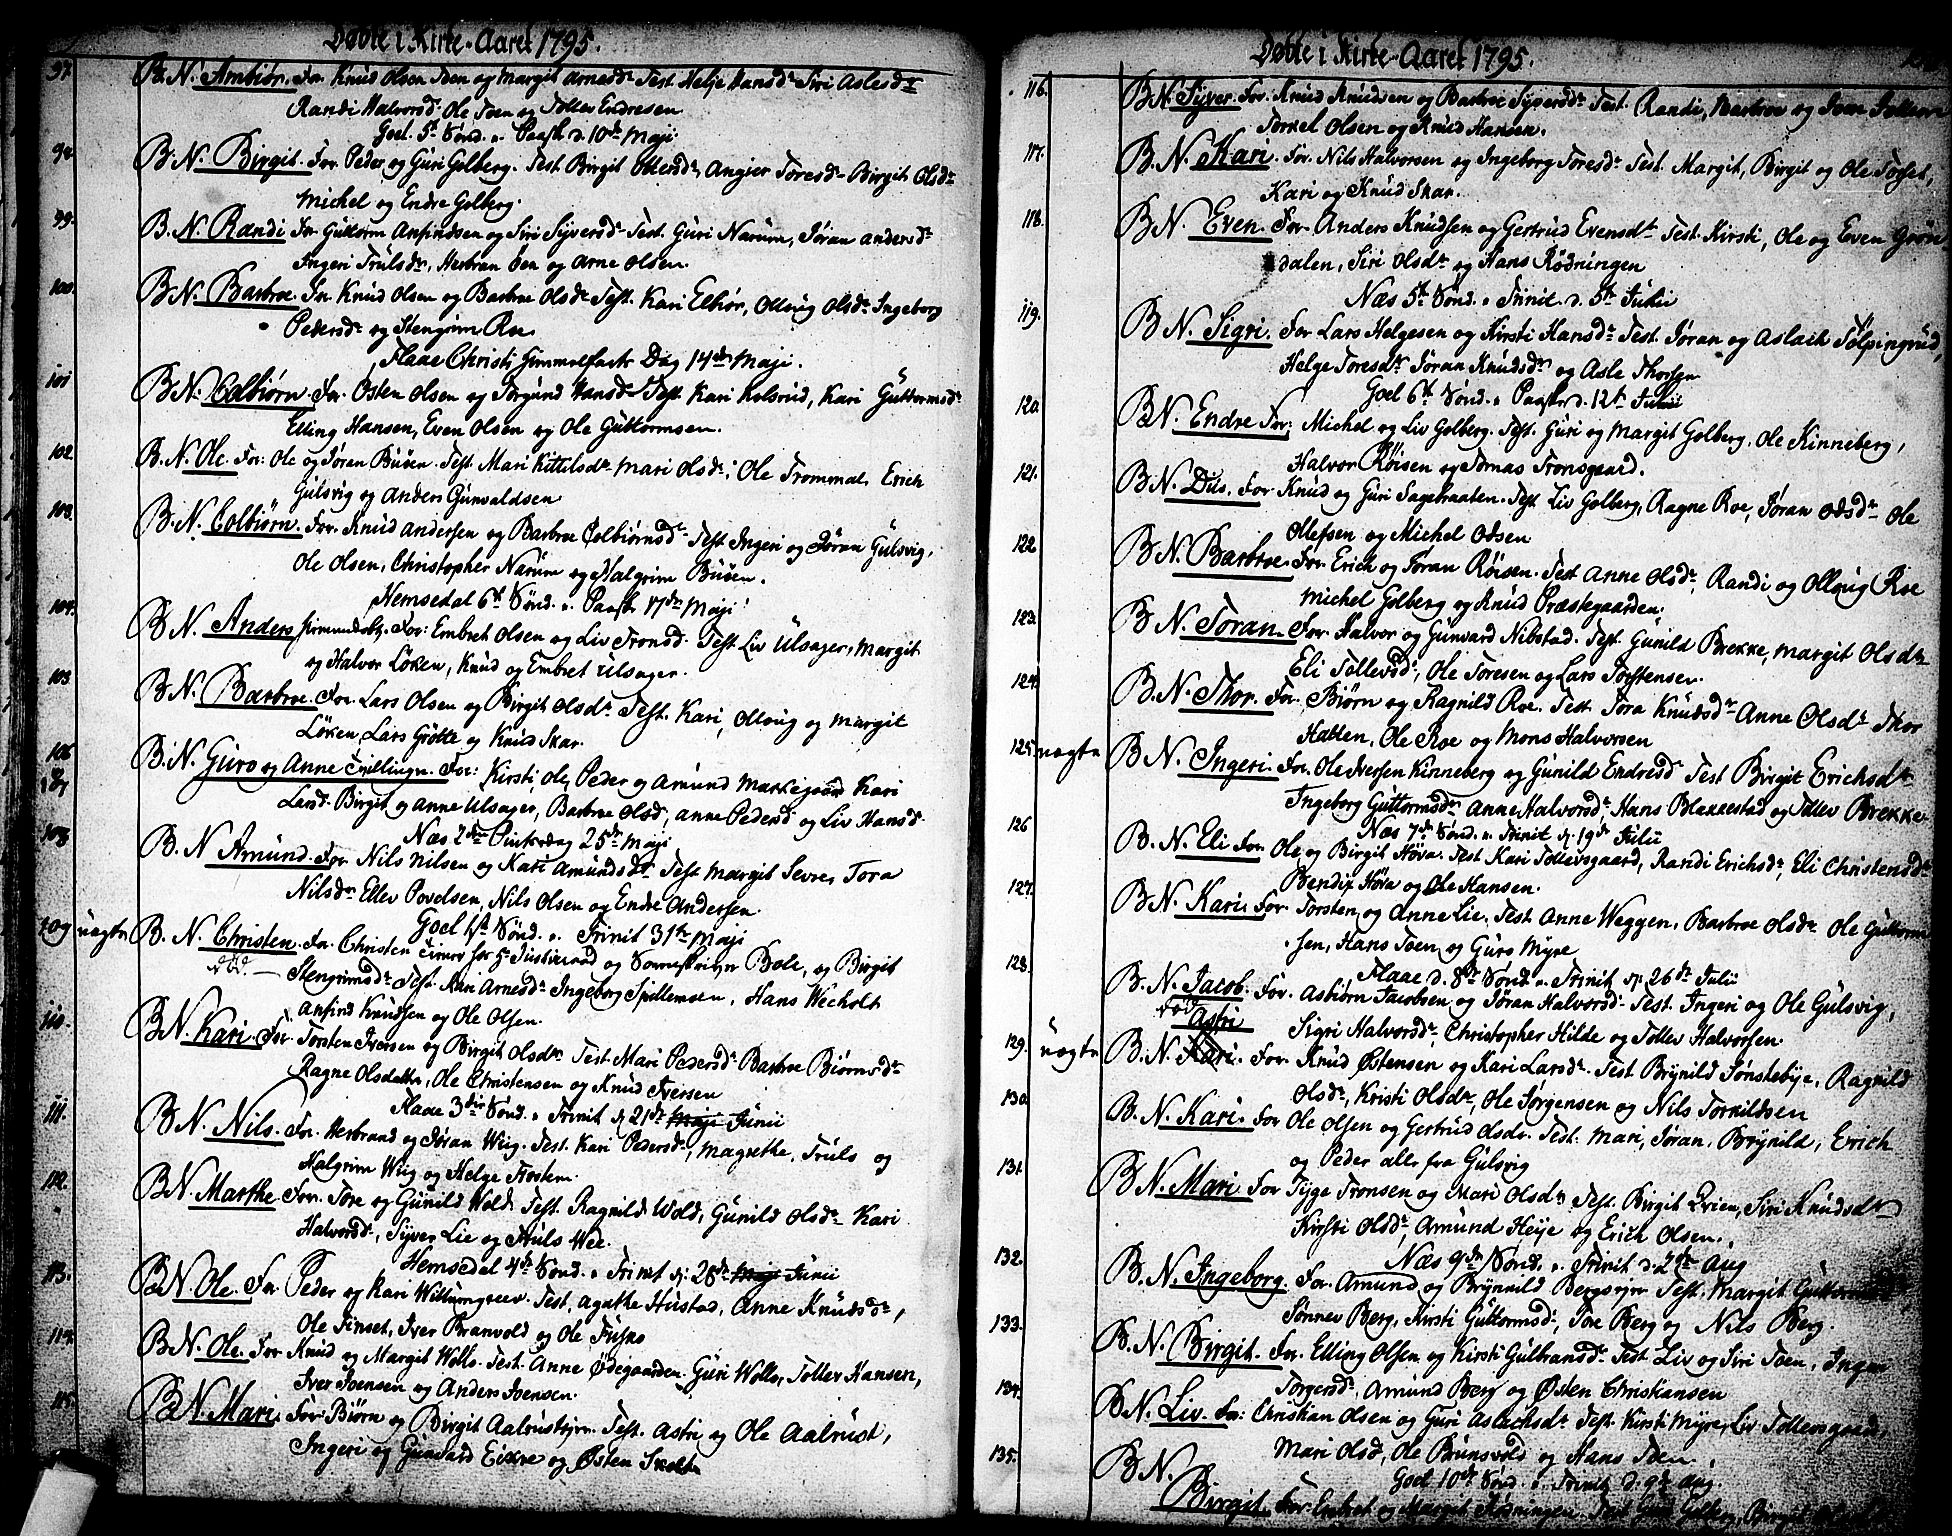 Døbte i Kirke-Aaret 1795.
97. B. N. Ambiør. For. Knud Olsen Toen og Margit Arnesdr Test. Helje Hansdr Siri Aslesdr
Randi Halvorsdr Ole Toen og Tollev Endresen
Goel. 5te Sønd. p. Paask d. 10de Maji
98. B. N. Birgit. For. Peder og Guri Golberg. Test. Birgit Ottersdr, Angier Toresdr Birgit Olsdr
Michel og Endre Golberg.
99. B. N. Randi For Guttorm Anfindsen og Siri Syversdr Test. Guri Narum, Jøran Andersdr
Ingeri Trulsdr, Herbran Oen og Arne Olsen.
100. B. N. Barbroe. For. Knud Olsen og Barbroe Olsdr Test. Kari Elbiør, Ollaug Olsdr Ingeborg
Pedersdr og Stengrim Roe
Flaae Christi Himmelfarts Dag 14de Maji.
101 B. N. Colbiørn. For. Østen Olsen og Jørgund Hansdr Test. Kari Kolsrud, Kari Guttormsdr
Elling Hansen, Even Olsen og Ole Guttormsen.
102. B. N. Ole. For: Ole og Jøran Buøen. Test. Mari Kittilsdr Mari Olsdr, Ole Trommal, Erich
Gulsvig og Anders Gunvaldsen
103. B. N. Colbiørn. For. Knud Andersen og Barbroe Colbiørnsdr Test Ingeri og Jøran Gulsvig,
Ole Olsen, Christopher Narum og Halgrim Buøen.
Hemsedal 6te Sønd. p. Paask 17de Maji
104. B. N. Anders For: Embret Olsen og Liv Tronsd. Test Liv Ulsager, Margit
og Halvor Løken, Knud og Embret Ulsager.
105 B. N. Barbroe. For. Lars Olsen og Birgit Olsdr Test. Kari, Ollaug og Margit
Løken, Lars Grøtte og Knud Skar.
106 B. N. Guro og Anne Tvillinger. For: Kirsti, Ole, Peder og Amund Markegaard Kari
107 Land. Birgit og Anne Ulsager, Barbroe Olsd, Anne Pedersd og Liv Hansd.
Næs 2den Pintsedag 25de Maji
108 B. N. Amund. For Nils Nilsen og Kari Amundsdr Test Margit Sevre, Tora
Nilsdr Ellev Povelsen, Nils Olsen og Endre Andersen
Goel 1ste Sønd. p. Trinit 31te Maji
109 uægte B. N. Christen. For. Christen Tiener for Hr Justitsraad og Sorenskriver Bole, og Birgit
død. Stengrimsdr Test. Kari Arnesdr Ingeborg Spillemsen, Hans Wecholt
Anfind Knudsen og Ole Olsen.
110. B. N. Kari. For Torsten Iversen og Birgit Olsdr Test. Mari Pedersdr Barbroe Biørnsdr
Ragne Olsdatter, Ole Christensen og Knud Iversen
Flaae 3die Sønd. p. Trinit d. 21de Maji Junii
111. B. N. Nils. For. Herbrand og Jøran Wiig. Test. Kari Pedersdr, Magrethe, Truls og
Halgrim Wiig og Helge Trostem.
112. B. N. Marthe. For. Tore og Gunild Wold. Test. Ragnild Wold, Gunild Olsdr Kari
Halvorsdr, Syver Lie og Truls Wee.
Hemsedal 4de Sønd. p. Trinit d. 28de Maji Junii
113. B. N. Ole. For Peder og Kari Test. Agathe Hustad, Anne Knudsdr,
Ole Finset, Iver Branvold og Ole
114. B. N. Ole. For Knud og Margit Wolls. Test. Anne Ødegaarden. Guri Wolls, Tollev Hansen,
Iver Joensen og Anders Joensen.
115. B. N. Mari. For. Biørn og Birgit Test. Astri og Ole Aalrust,
Ingeri og Gunvard Eikre og Østen
Døbte i Kirke-Aaret 1795.
116. B. N. Syver For. Knud Knudsen og Barbroe Syversdr. Test. Randi, Barbroe og
Torkel Olsen og Knud Hansen.
117. B. N. Kari. For. Nils Halvorsen og Ingeborg Toresdr Test. Margit, Birgit og Ole Torset,
Kari og Knud Skar.
118. B. N. Even. For. Anders Knudsen og Gertrud Evensdr Test. Kirsti, Ole og Even Grøn
dalen, Siri Olsdr og Hans Rødningen
Næs 5te Sønd. p. Trinit. d. 5te Julii
119. B. N. Sigri. For Lars Helgesen og Kirsti Hansdr Test. Jøran og Aslach Tølpingrud,
Helge Toresdr Jøran Knudsdr og Asle Thorsen
Goel 6te Sønd. p. Paask d. 12te Julii
120 B. N. Endre For: Michel og Liv Golberg. Test. Guri og Margit Golberg. Ole Kinneberg,
Halvor Røisen og Tomas Tronsgaard.
121. B. N. Dus. For Knud og Guri Sagebraaten. Test Liv Golberg, Ragne Roe, Jøran Odsdr Ole
Ollefsen og Michel Odsen
122 B. N. Barbroe. For. Erich og Jøran Røisen. Test Anne Olsdr, Randi og Ollaug Roe
Michel Golberg og Knud Præstegaarden.
123. B. N. Jøran. For Halvor og Gunvard Nibstad. Test. Gunild Brekke, Margit Olsdr
Eli Tollevsdr, Ole Toresen og Lars Torstensen.
124 B. N. Thor. For. Biørn og Ragnild Roe. Test. Tora Knudsdr Anne Olsdr Thor
Hatten, Ole Roe og Mons Halvorsen
125. uægte B. N. Ingeri. For. Ole Iversen Kinneberg og Gunild Endresd Test. Birgit Erichsdr
Ingeborg Guttormsdr Anne Halvorsdr, Hans Blakkestad og Tollev Brekke
Næs 7de Sønd. p. Trinit d. 19de Julii
126 B. N. Eli For. Ole og Birgit Høva. Test. Kari Tollevsgaard, Randi Erichsdr, Eli Christensdr
Bendix Høva og Ole Hansen.
127. B. N. Kari. For Torsten og Anne Lie. Test. Anne Weggen, Barbroe Olsdr Ole Guttorm
sen, Hans Toen og Guro Myre
Flaae d. 8de Sønd. p. Trinit d. 26de Julii
128. B. N. Jacob. For. Asbiørn Jacobsen og Jøran Halvorsdr Test. Ingeri og Ole Gulsvig,
død
Sigri Halvorsdr, Christopher Hilde og Tollev Halvorsen.
Astri
129. uægte B. N. Kari. For. Knud Østensen og Kari Larsdr. Test. Brynild Sønstebye, Ragnild
Olsdr, Kristi Olsdr, Ole Jørgensen og Nils Torkildsen
130 B. N. Kari. For Ole Olsen og Gertrud Olsdr. Test. Mari, Jøran, Brynild, Erich
og Peder alle fra Gulsvig
131. B. N. Mari For Tyge Tronsen og Mari Olsdr Test. Birgit Qvien, Siri Knudsdr
Kirsti Olsdr, Amund Heye og Erich Olsen.
Næs 9de Sønd. p. Trinit d. 2den Aug
132. B. N. Ingeborg. For. Amund og Brynnild Test. Margit
Sønnev Berg, Kirsti Guttormsdr, Tore Berg og Nils Berg.
133. B. N. Birgit. For. Elling Olsen og Kirsti Gulbransdr Test Liv og Siri Toen, Inger
Torgersdr, Amund Berg og Østen Christiansen
134. B. N. Liv. For: Christian Olsen og Guri Aslachsdr Test. Kirsti Myre, Liv Tollevsgaard,
Mari Olsd, Ole Brunsvold og Hans Toen.
Goel 10de Sønd. p. Trinit. d. 9de Aug
135. B. N. Birgit. For. Embret og Margit Test